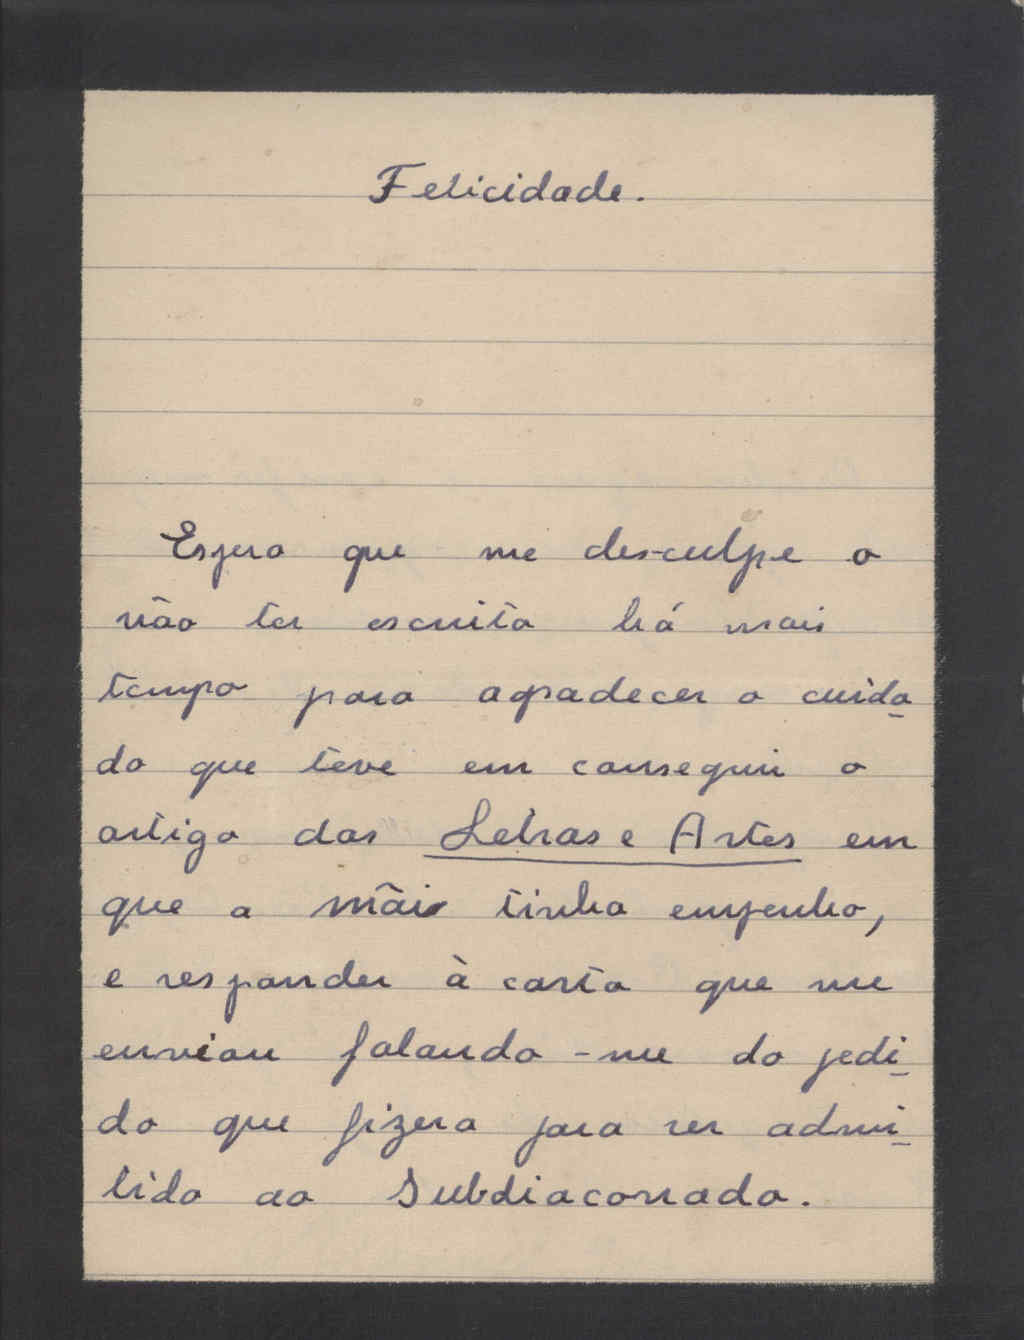 Felicidade.
Espero que me desculpe o
não ter escrito há mais
tempo para agradecer o cuida
do que teve em conseguir o
artigo das Letras e Artes em
que a mãi tinha empenho,
e responder à carta que me
enviou falando-me do pedi
do que fizera para ser admi
tido ao Subdiaconado.